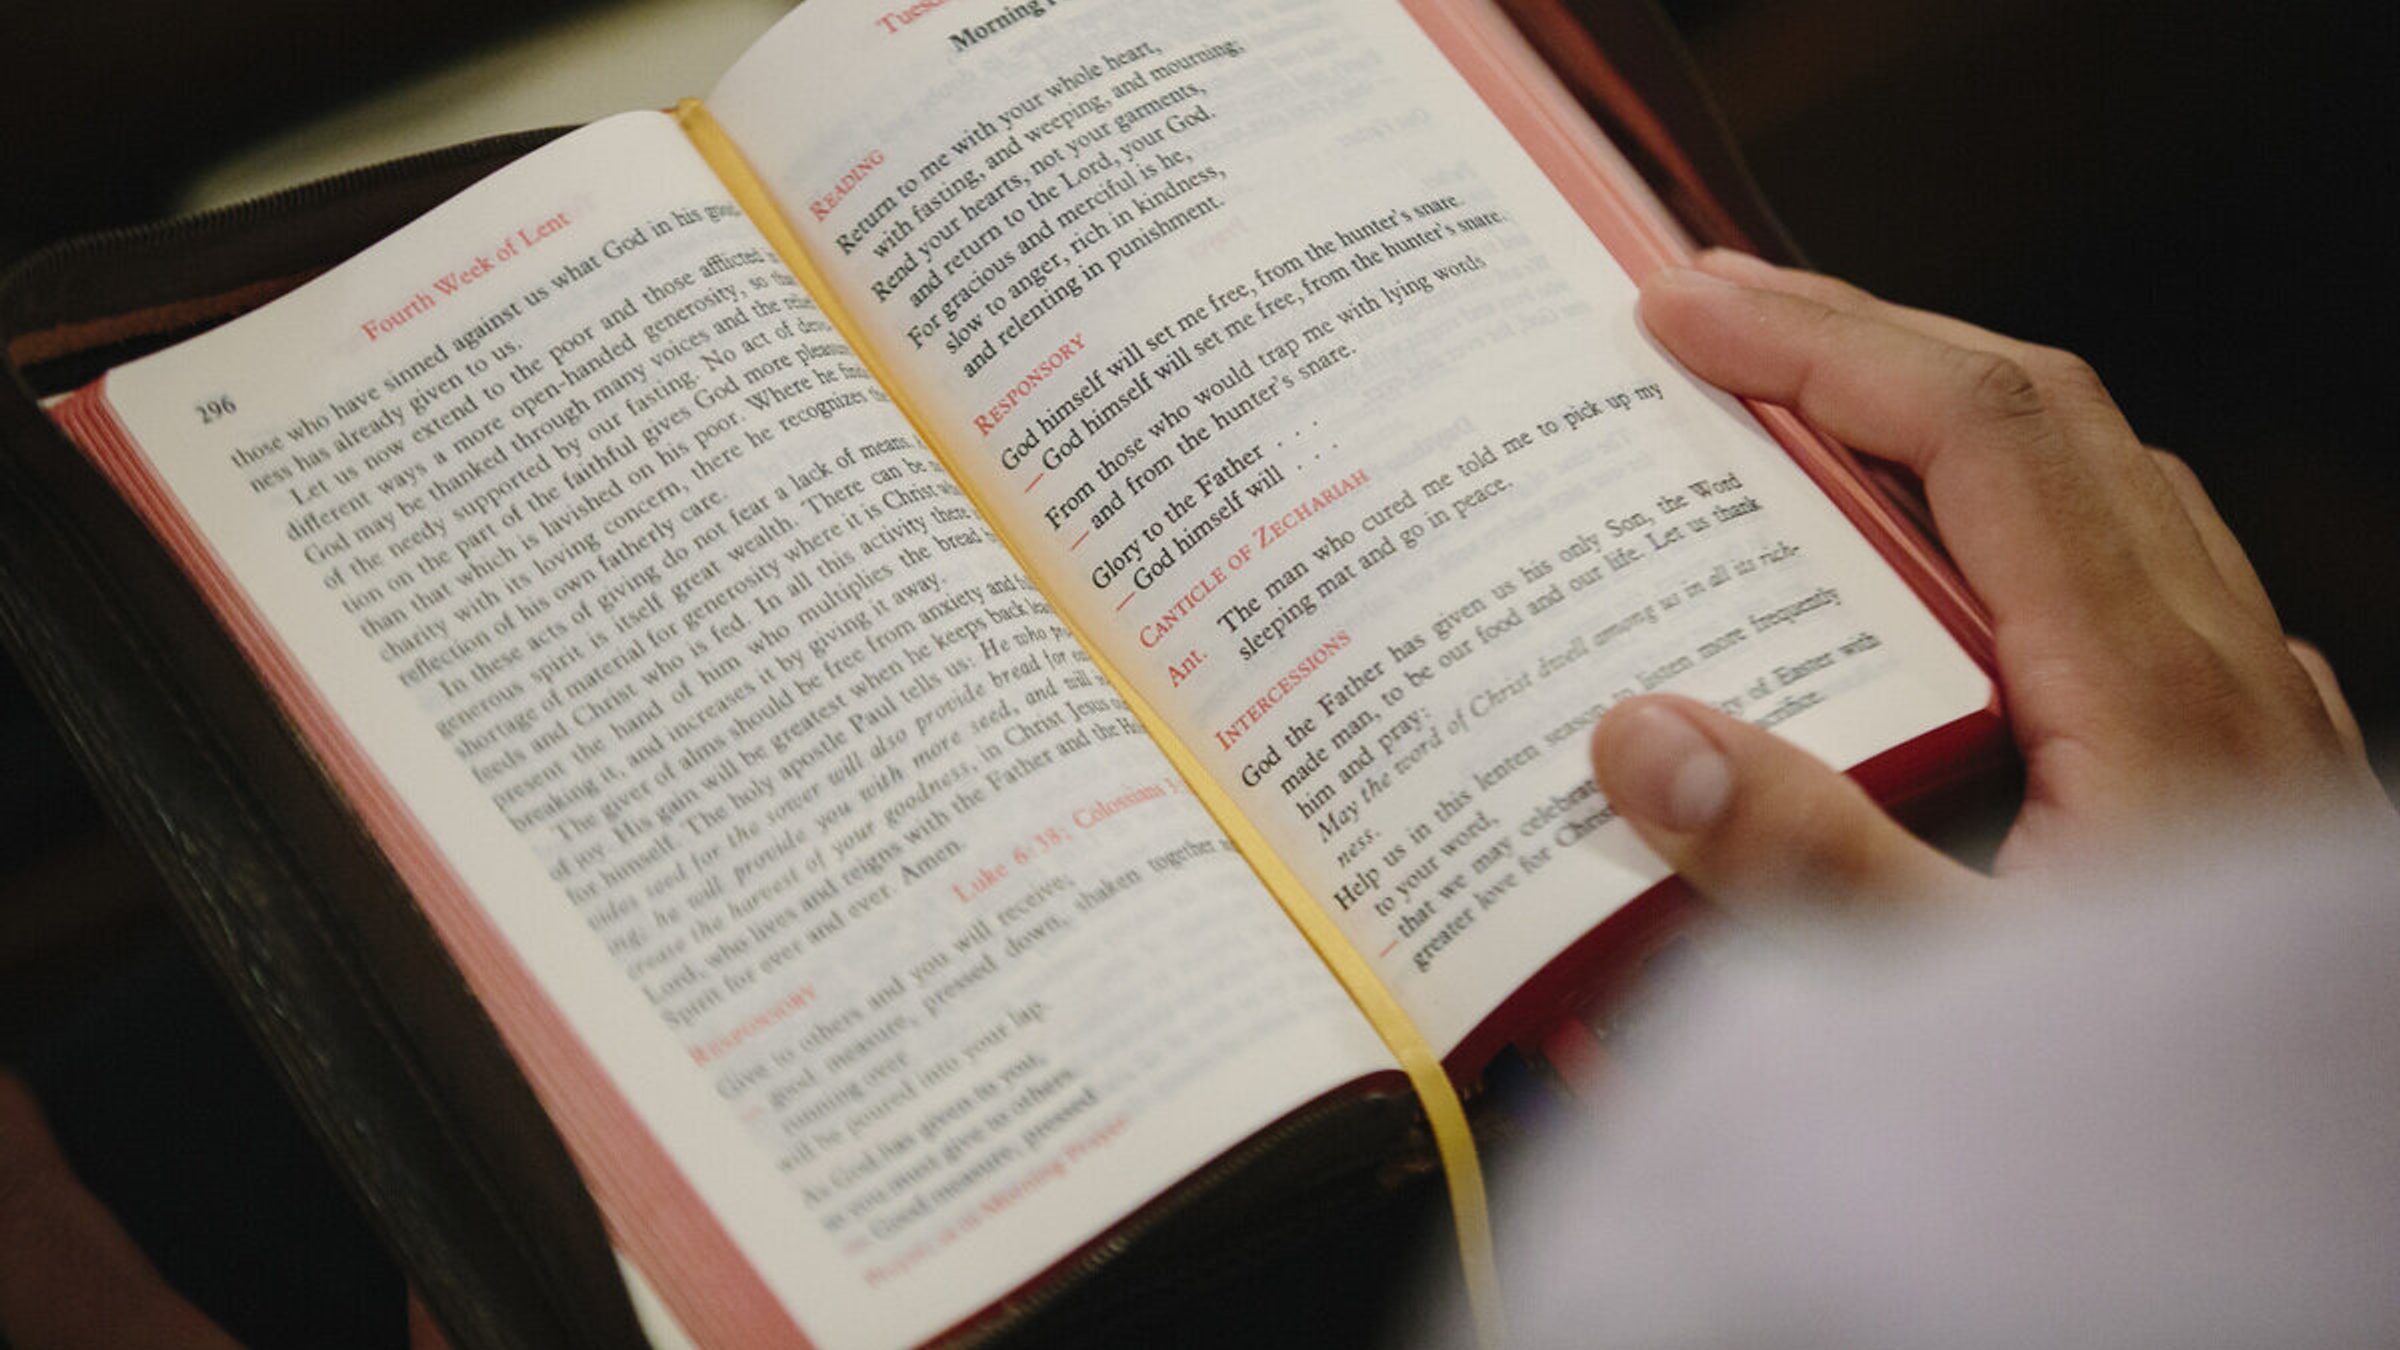 296
Fourth Week of Lent
those who have sinned against us what God in his
ness has already given to us.
Let us now extend to the poor and those afflicted
different ways a more open-handed generosity, so
God may be thanked through many voices and the
of the needy supported by our fasting. No act of
tion on the part of the faithful gives God more
than that which is lavished on his poor. Where he
charity with its loving concern, there he recognizes
reflection of his own fatherly care.
In these acts of giving do not fear a lack of means.
generous spirit is itself great wealth. There can be
shortage of material for generosity where it is Christ
feeds and Christ who is fed. In all this activity there
present the hand of him who multiplies the bread
breaking it, and increases it by giving it away.
The giver of alms should be free from anxiety and
of joy. His gain will be greatest when he keeps back
for himself. The holy apostle Paul tells us: He who
vides seed for the sower will also provide bread for
ing; he will provide you with more seed, and will
crease the harvest of your goodness, in Christ Jesus
Lord, who lives and reigns with the Father and the
Spirit for ever and ever. Amen.
RESPONSORY
Luke 6:38; Colossians
Give to others and you will receive;
— good measure, pressed down, shaken together
running over
will be poured into your lap.
As God has given to you,
so you must give to others.
— Good measure, pressed
Prayer, as in Morning Prayer
Morning
READING
Return to me with your whole heart,
with fasting, and weeping, and mourning;
Rend your hearts, not your garments,
and return to the Lord, your God.
For gracious and merciful is he,
slow to anger, rich in kindness,
and relenting in punishment.
RESPONSORY
God himself will set me free, from the hunter's snare.
— God himself will set me free, from the hunter's snare.
From those who would trap me with lying words
— and from the hunter's snare.
Glory to the Father . . .
— God himself will . . .
CANTICLE OF ZECHARIAH
Ant. The man who cured me told me to pick up my
sleeping mat and go in peace.
INTERCESSIONS
God the Father has given us his only Son, the Word
made man, to be our food and our life. Let us thank
him and pray:
May the word of Christ dwell among us in all its rich-
ness.
Help us in this lenten season to listen more frequently
to your word,
— that we may celebrate of Easter with
greater love for